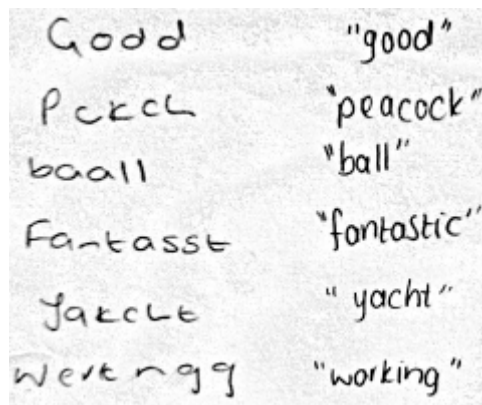 Godd "good"
Pckch "peacock"
baall "ball"
Fantasst "fantastic"
Yakcht "yacht"
Werk ngg "working"